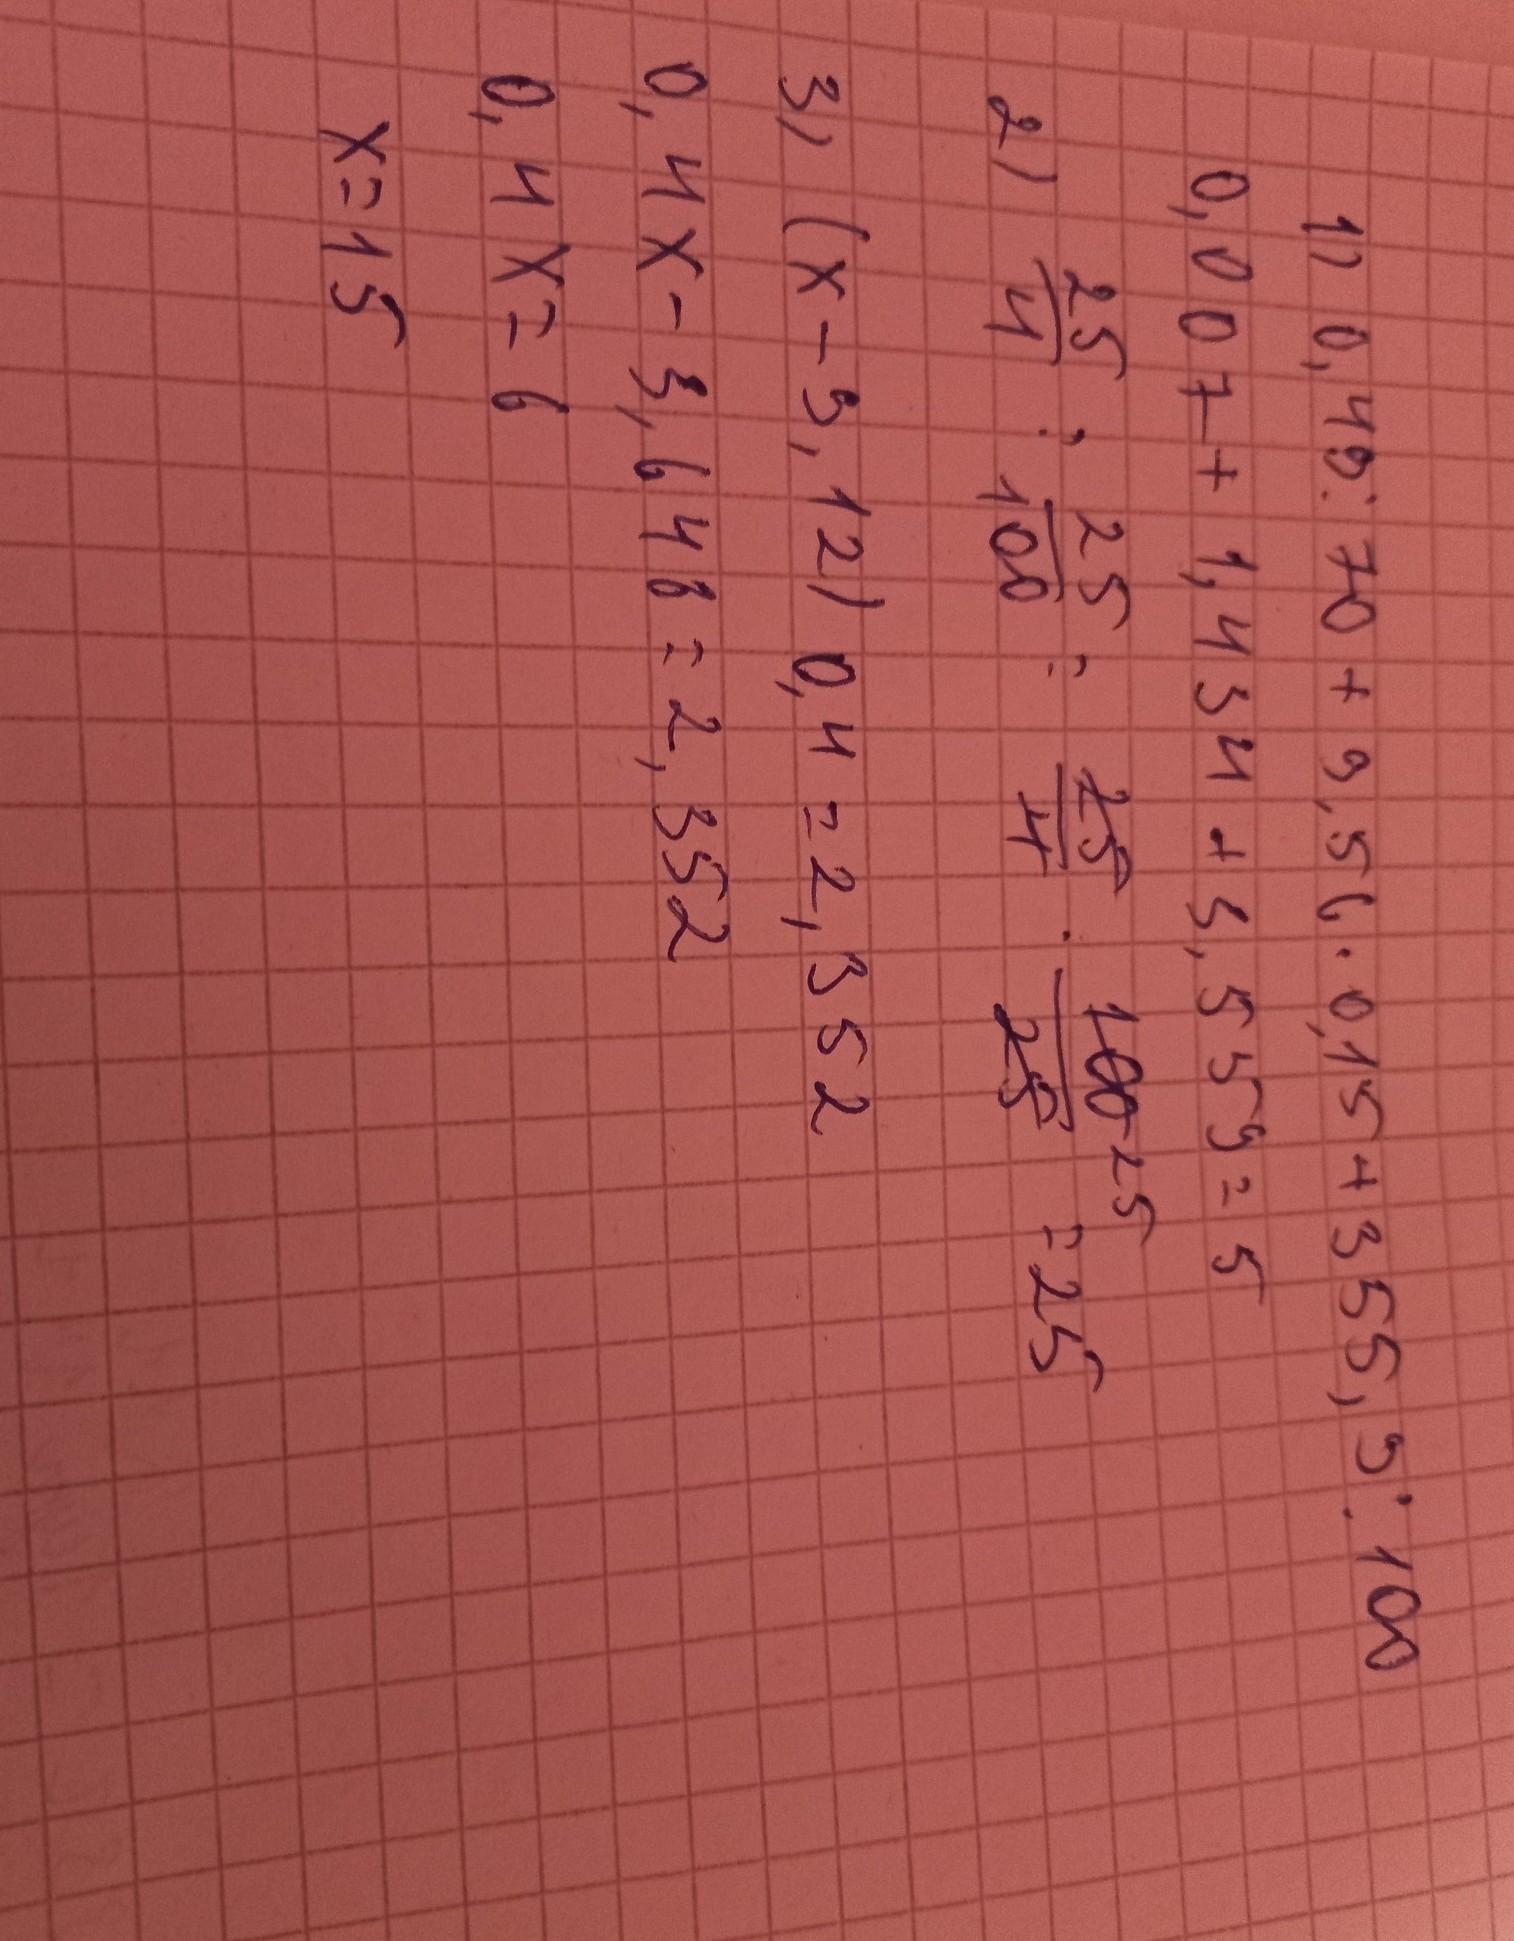 1) 0,49:70+9,56·0,15+355,9:100
0,007+1,434+3,559=5
2) 25/4 : 25/100 = 25/4 · 100 25/25 = 25
3) (x-9,12) 0,4=2,352
0,4x-3,648=2,352
0,4x=6
x=15